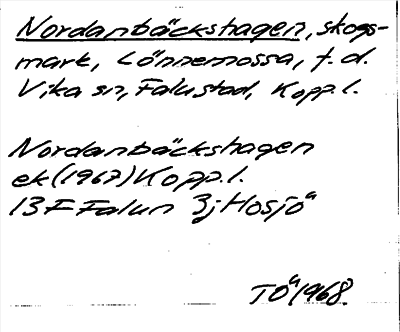 Nordanbäckshagen, skogs-
mark, Lönnemossa, f.d.
Vika sn, Falu stad, Kopp.l.
Nordanbäckshagen
ek (1967) Kopp.l.
13F Falun 3j Hosjö
TÖ 1968.